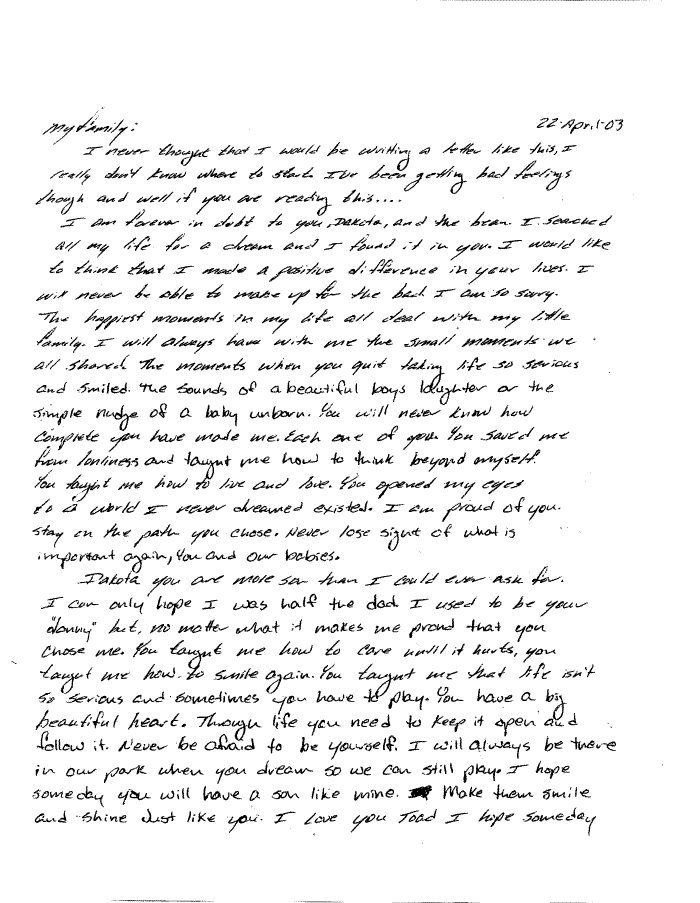 My Family: 22 April 03
I never thought that I would be writting a letter like this, I
really don't know where to start. I've been getting bad feelings
though and well if you are reading this....
I am forever in debt to you, Dakota, and the bean. I searched
all my life for a dream and I found it in you. I would like
to think that I made a positive difference in your lives. I
will never be able to make up for the bad. I am so sorry.
The happiest moments in my life all deal with my little
family. I will always have with me the small moments we
all shared. The moments when you quit taking life so serious
and smiled. The sounds of a beautiful boys laughter or the
simple nudge of a baby unborn. You will never know how
complete you have made me. Each one of you. You saved me
from lonliness and taught me how to think beyond myself.
You taught me how to live and love. You opened my eyes
to a world I never dreamed existed. I am proud of you.
Stay on the path you chose. Never lose sight of what is
important again, You and our babies.
Dakota you are more son than I could ever ask for.
I can only hope I was half the dad. I used to be your
"danny" but, no matter what it makes me proud that you
chose me. You taught me how to care until it hurts, you
taught me how to smile again. You taught me that life isn't
so serious and sometimes you have to play. You have a big
beautiful heart. Through life you need to keep it open and
follow it. Never be afraid to be yourself. I will always be there
in our park when you dream so we can still play. I hope
someday you will have a son like mine. Make them smile
and shine Just like you. I Love you Toad I hope someday